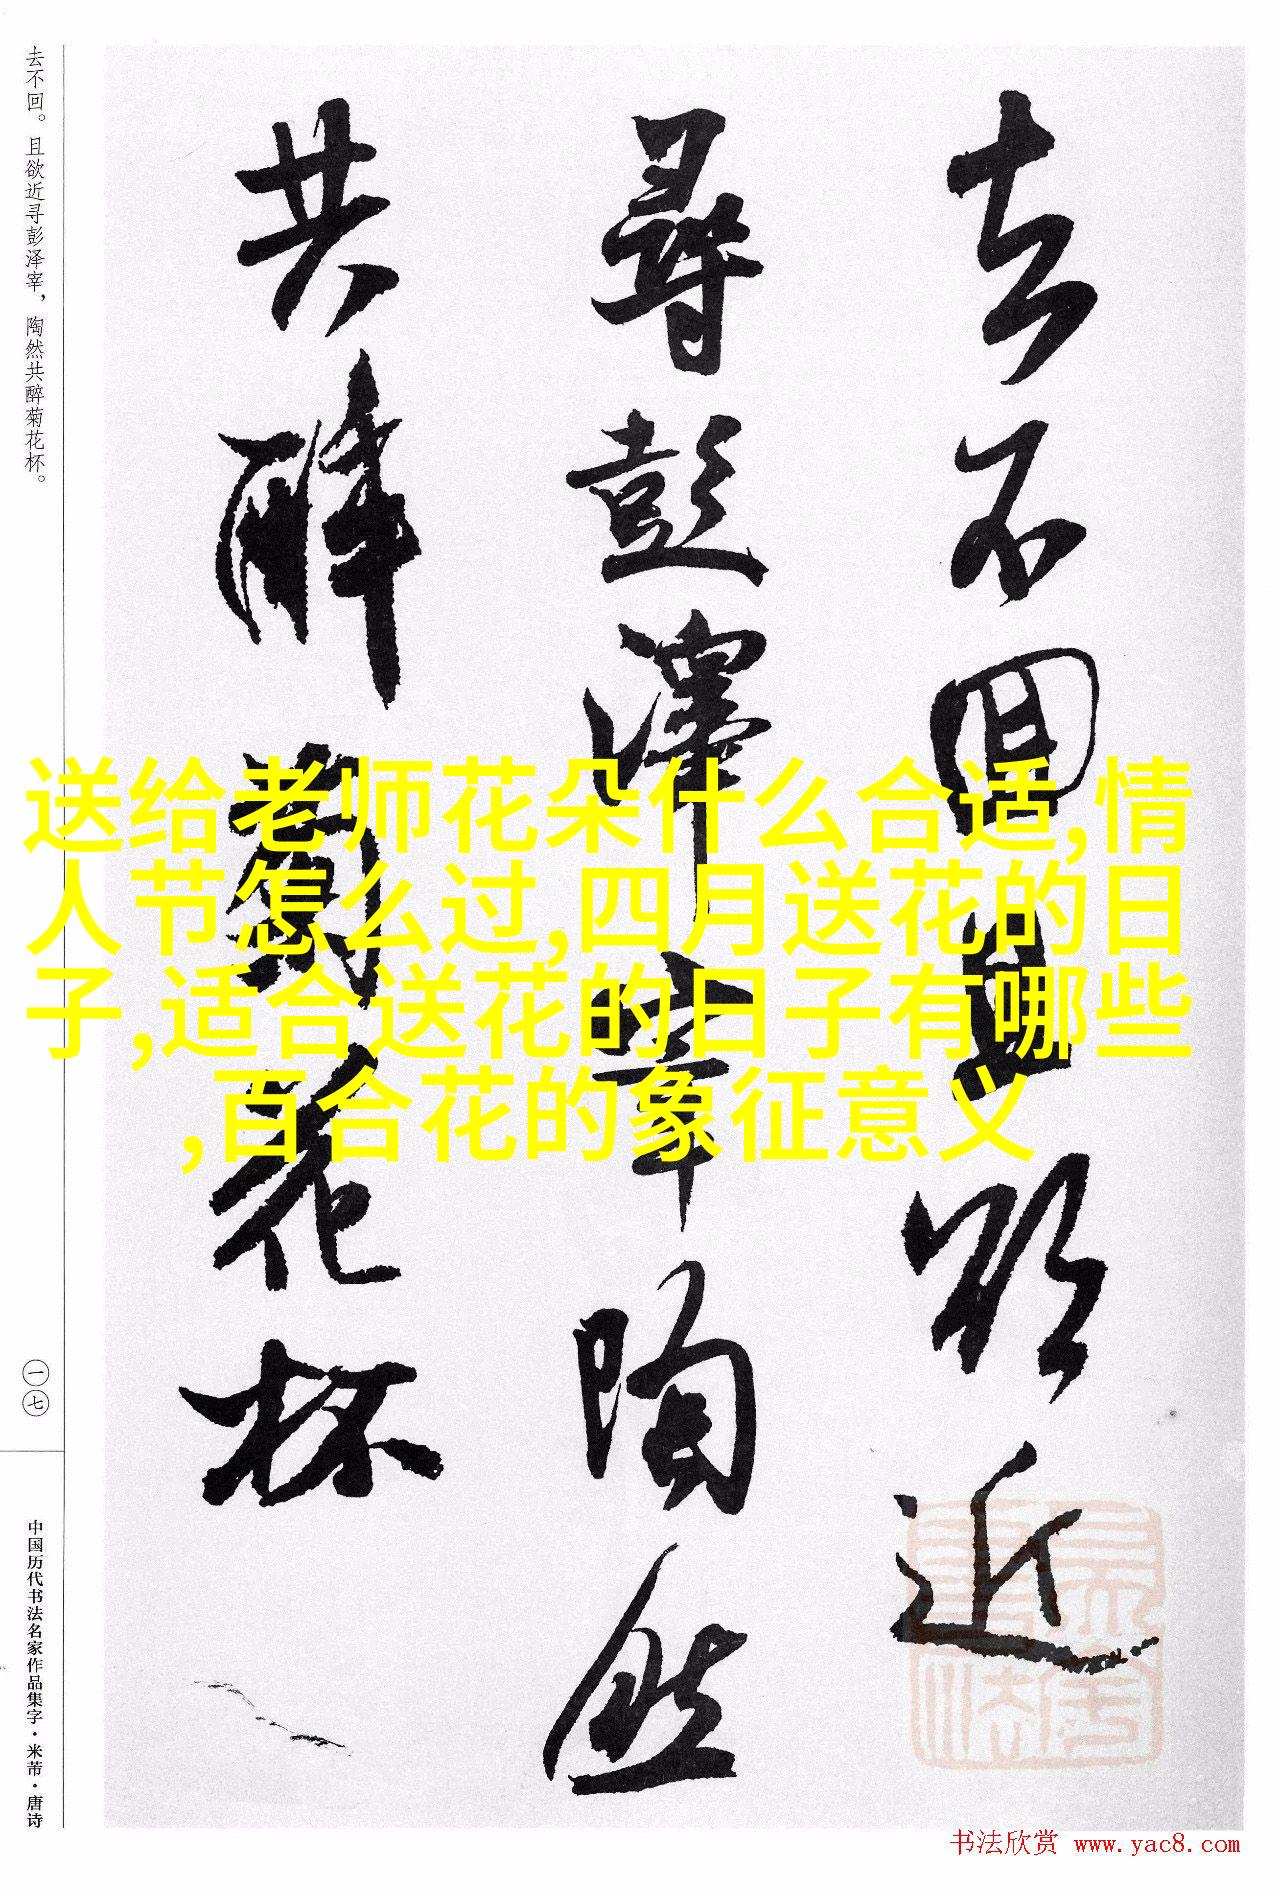 去不回。且欲近寻彭泽宰，陶然共醉菊花杯。
一七
中国历代书法名家作品集字·米芾·唐诗
去不回且欲近
尋彭澤宰陶然
共醉菊花杯
送给老师花朵什么合适,情
人节怎么过,四月送花的日
子,适合送花的日子有哪些
,百合花的象征意义
书法欣赏 www.yac8.com